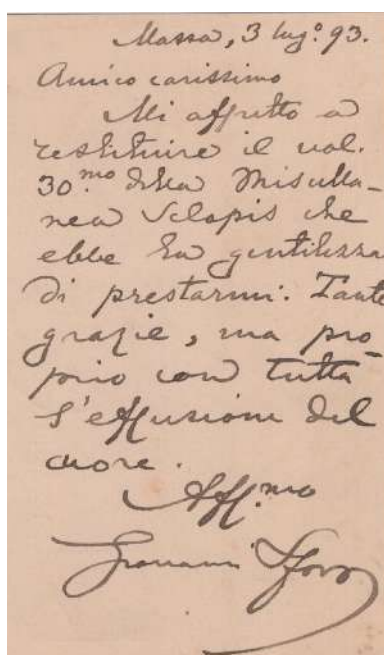 Massa, 3 lug.º 93.
Amico carissimo
Mi affretto a
restituire il vol.
30.mo della Miscella-
nea Sclopis che
ebbe la gentilezza
di prestarmi. Tante
grazie, ma pro-
prio con tutta
l'effusione del
cuore.
Aff.mo
Giovanni Sforza